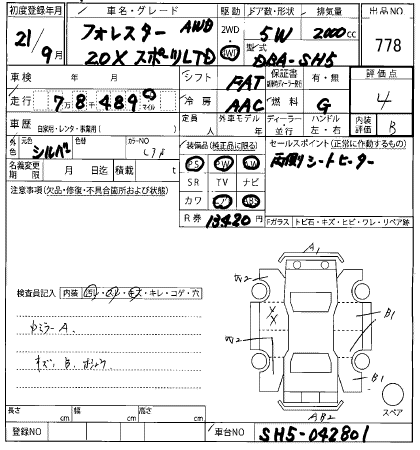 初度登録年月 車名・グレード 駆動 ドア数・形状 排気量 出品NO
21/9月 フォレスター AWD 2WD 5W 2000cc 778
20X スポーツLTD 4WD 型式 DBA-SH5
車検 年 月 シフト FAT 保証書 有・無 評価点
走行 7万8千489 マイル 冷房 AAC 燃料 G 4
車歴 自家用・レンタ・事業用( ) 定員 人 外車モデル 年 ディーラー・並行 ハンドル 左・右 内装評価 B
外色 元色 シルバー 色替 カラーNO 装備品(純正品に限る) セールスポイント(正常に作動するもの)
名義変更期限 月 日迄 積載 t PS PW AW 両側シートヒーター
注意事項(欠品・修復・不具合箇所および状態) SR TV ナビ
カワ エアB ABS
R券 13420円 Fガラス トビ石・キズ・ヒビ・ワレ・リペア跡
A1
検査員記入 内装 汚レ・スレ・キズ・キレ・コゲ・穴
ミラーA.
キズ、B.
B1
B1
AB2
スペア
長さ cm 幅 cm 高さ cm
登録NO 車台NO SH5-042801